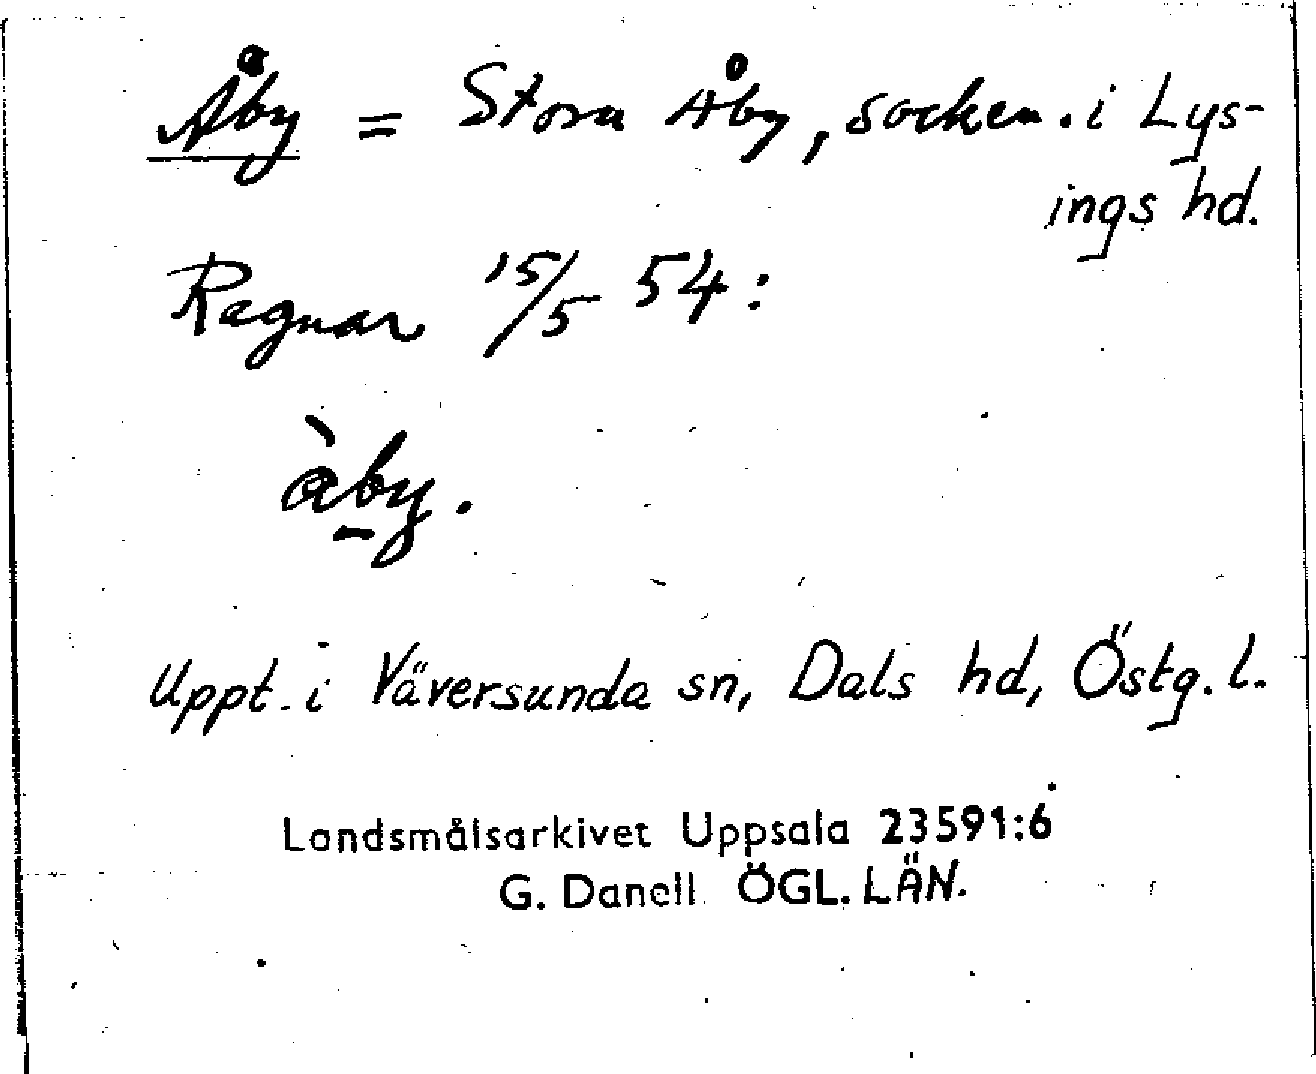 Åby = Stora Åby, socken i Lys-
ings hd.
Ragnar 15/5 54:
àby.
Uppt. i Väversunda sn, Dals hd, Östg. l.
Landsmålsarkivet Uppsala 23591:6
G. Danell ÖGL. LÄN.